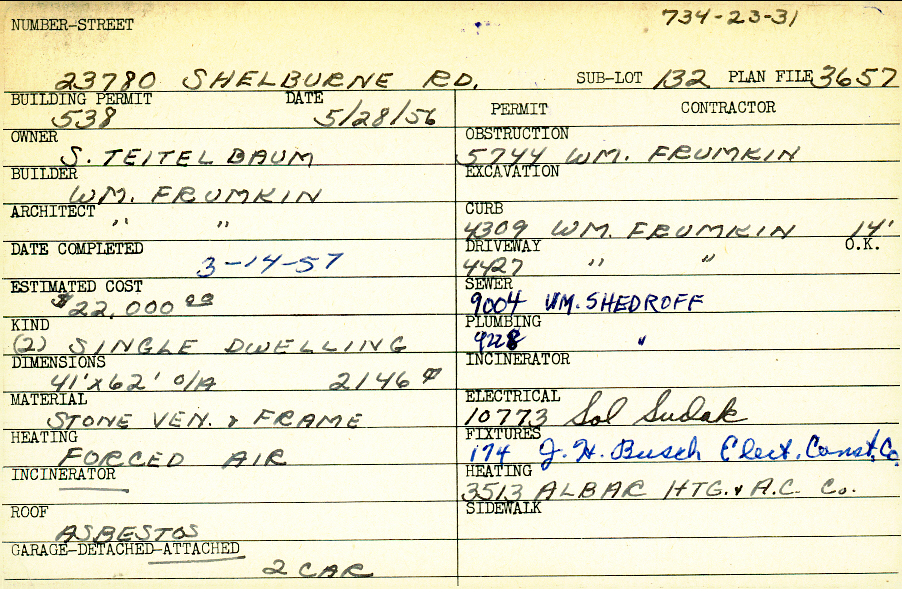 734-23-31
NUMBER-STREET
23780 SHELBURNE RD. SUB-LOT 132 PLAN FILE 3657
BUILDING PERMIT DATE
538 5/28/56
OWNER
S. TEITELBAUM
BUILDER
WM. FRUMKIN
ARCHITECT
" "
DATE COMPLETED
3-14-57
ESTIMATED COST
$22,000 00
KIND
(2) SINGLE DWELLING
DIMENSIONS
41'x62' O/A 2146 ▱
MATERIAL
STONE VEN. & FRAME
HEATING
FORCED AIR
INCINERATOR
ROOF
ASBESTOS
GARAGE-DETACHED-ATTACHED
2 CAR
PERMIT CONTRACTOR
OBSTRUCTION
5744 WM. FRUMKIN
EXCAVATION
CURB
4309 WM. FRUMKIN 14'
DRIVEWAY O.K.
4427 " "
SEWER
9004 WM. SHEDROFF
PLUMBING
9228 "
INCINERATOR
ELECTRICAL
10773 Sol Sudak
FIXTURES
174 J. H. Busch Elect. Const. Co
HEATING
3513 ALBAR HTG. & A.C. Co.
SIDEWALK